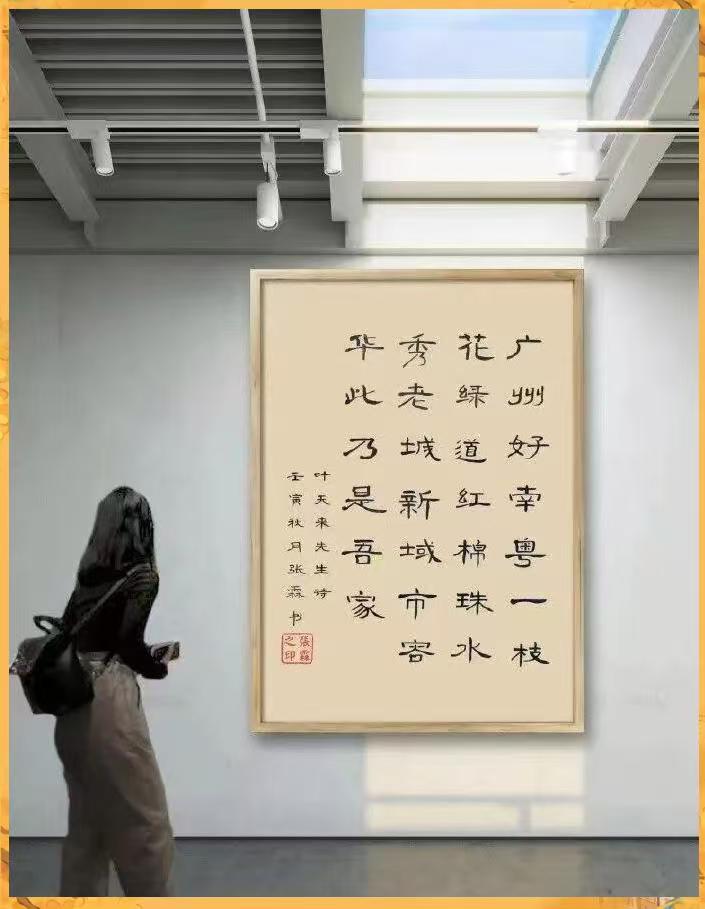 广州好南粤一枝
花绿道红棉珠水
秀老城新域市容
华此乃是吾家
叶天来先生诗
壬寅秋月张霖书
張霖之印